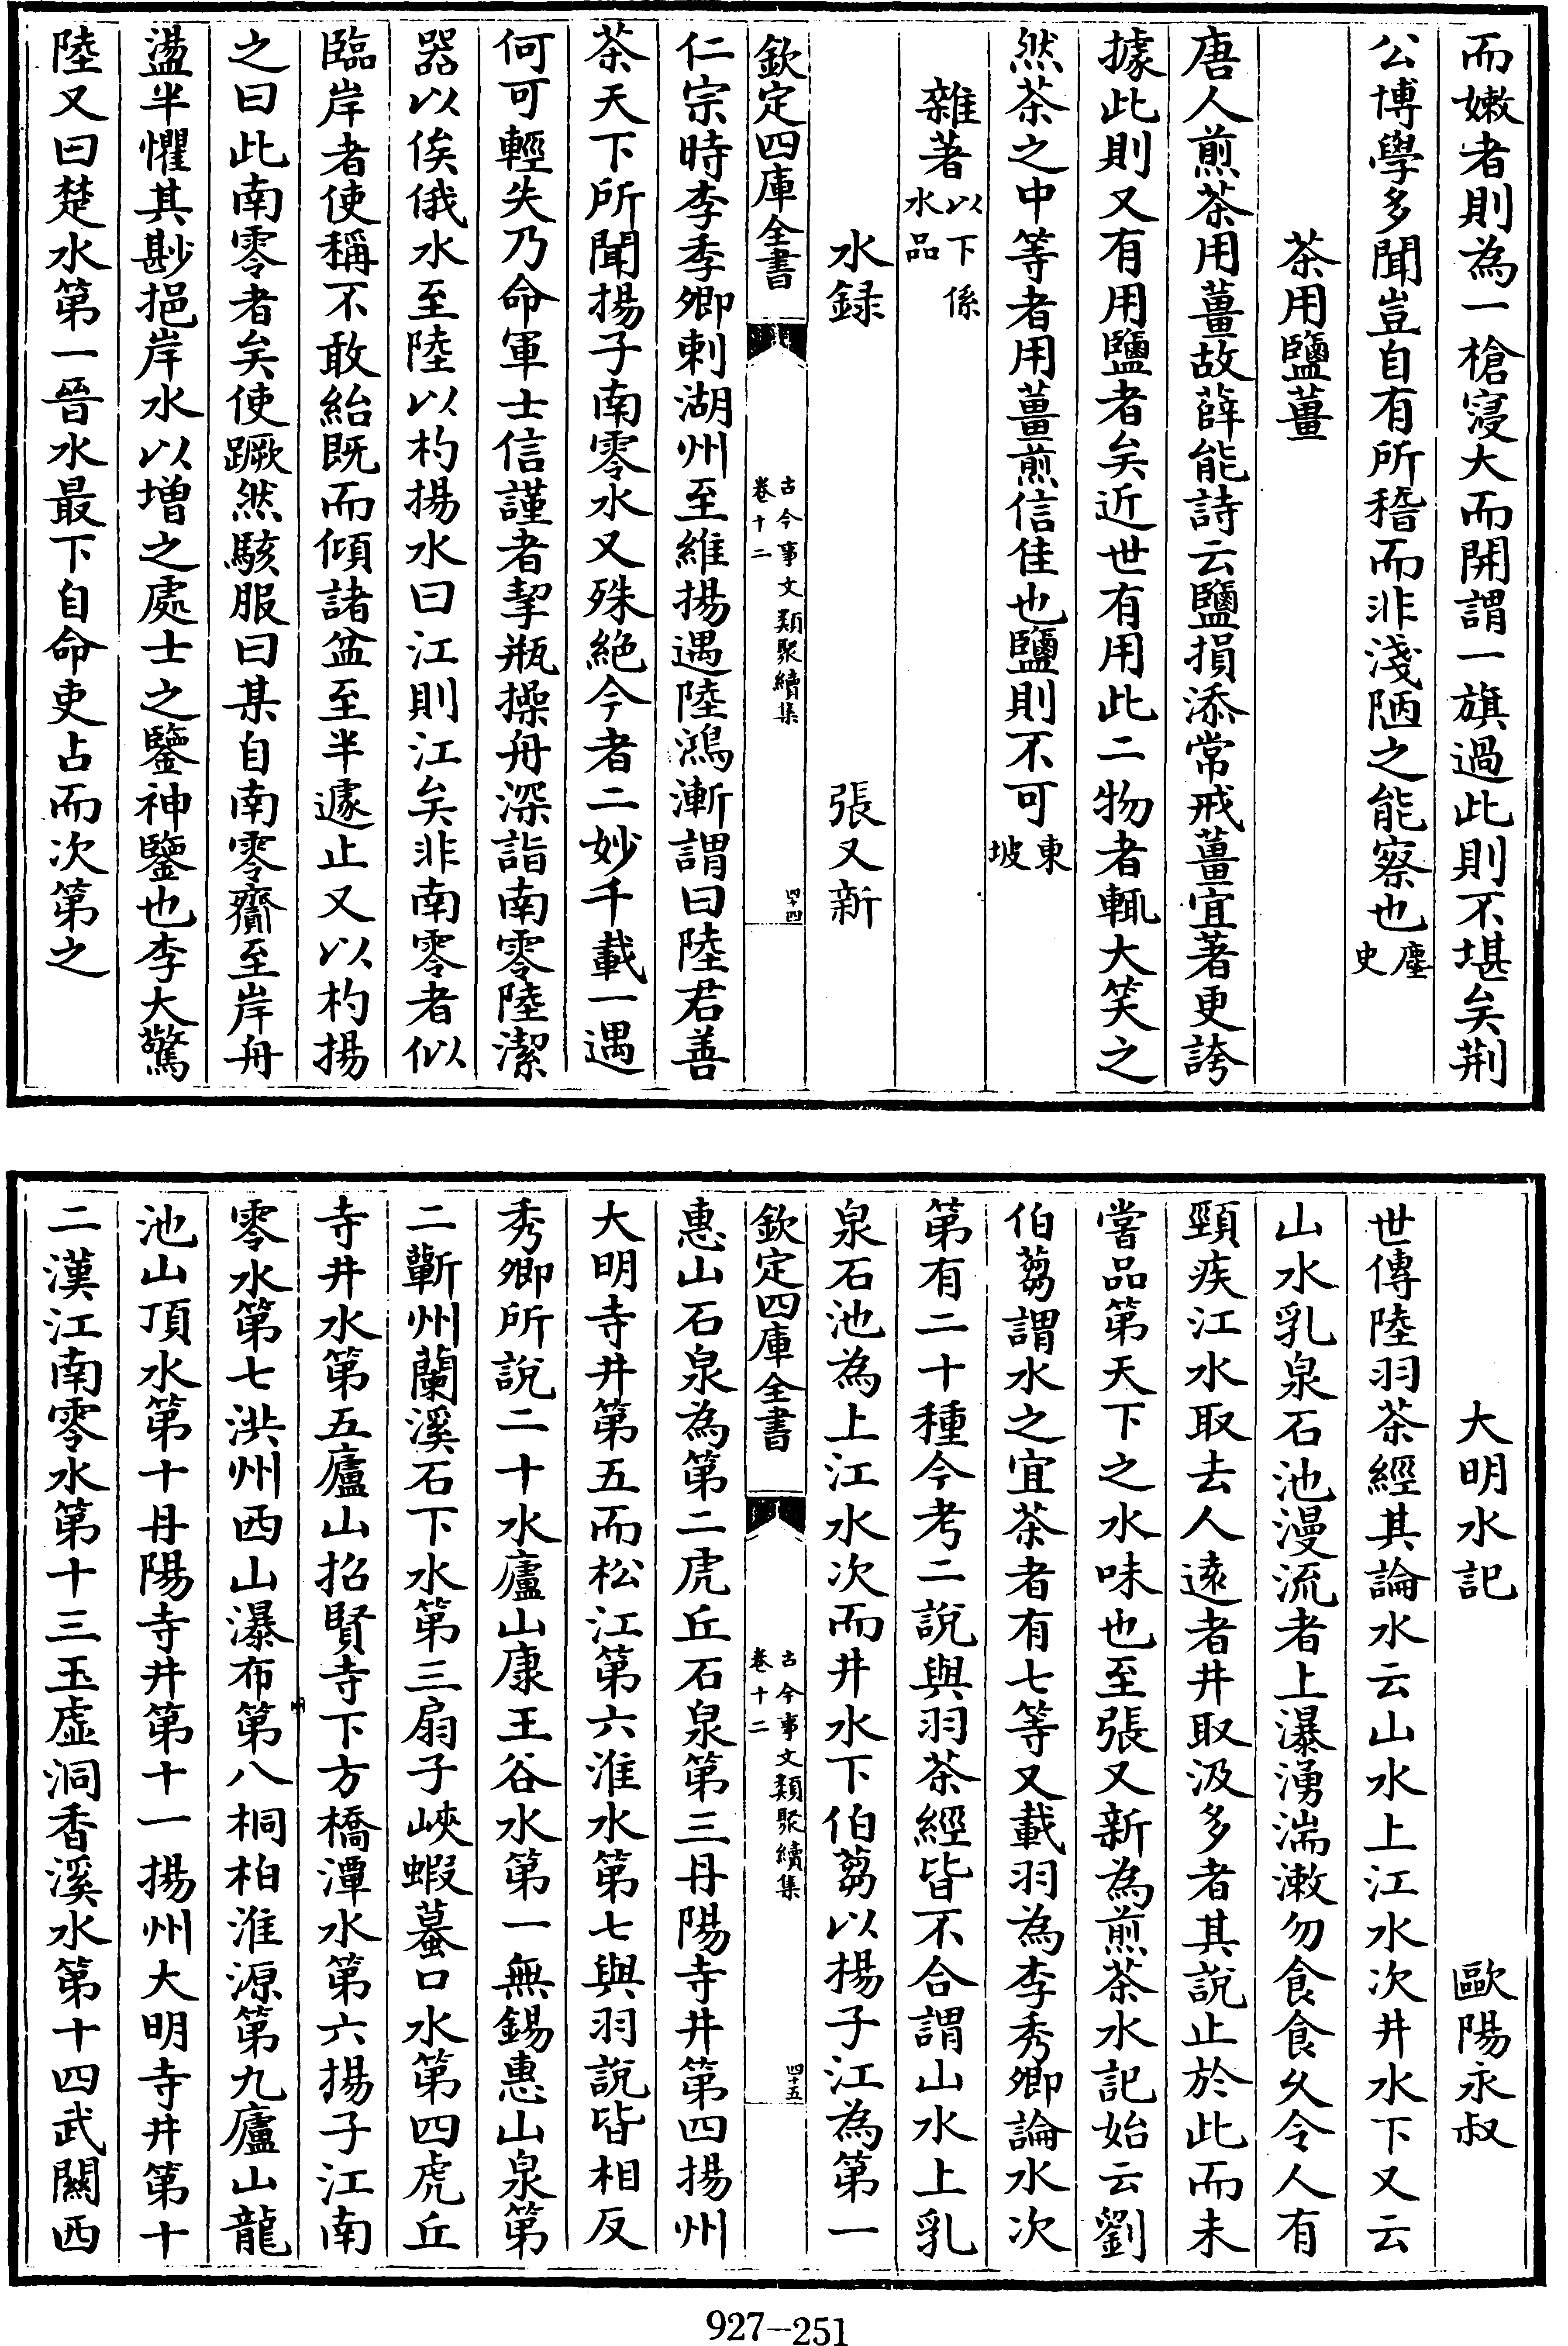 而嫩者則為一槍寖大而開謂一旗過此則不堪矣荆
公博學多聞豈自有所稽而非淺陋之能察也塵史
茶用鹽薑
唐人煎茶用薑故薛能詩云鹽損添常戒薑宜著更誇
據此則又有用鹽者矣近世有用此二物者輒大笑之
然茶之中等者用薑煎信佳也鹽則不可東坡
雜著以下係水品
水録 張又新
欽定四庫全書 古今事文類聚續集 卷十二 四十四
仁宗時李季卿刺湖州至維揚遇陸鴻漸謂曰陸君善
茶天下所聞揚子南零水又殊絶今者二妙千載一遇
何可輕失乃命軍士信謹者挈瓶操舟深詣南零陸潔
器以俟俄水至陸以杓揚水曰江則江矣非南零者似
臨岸者使稱不敢紿既而傾諸盆至半遽止又以杓揚
之曰此南零者矣使蹶然駭服曰某自南零齎至岸舟
盪半懼其尠挹岸水以增之處士之鑒神鑒也李大驚
陸又曰楚水第一晉水最下自命吏占而次第之
大明水記 歐陽永叔
世傳陸羽茶經其論水云山水上江水次井水下又云
山水乳泉石池漫流者上瀑湧湍漱勿食食久令人有
頸疾江水取去人遠者井取汲多者其說止於此而未
嘗品第天下之水味也至張又新為煎茶水記始云劉
伯芻謂水之宜茶者有七等又載羽為李秀卿論水次
第有二十種今考二說與羽茶經皆不合謂山水上乳
泉石池為上江水次而井水下伯芻以揚子江為第一
欽定四庫全書 古今事文類聚續集 卷十二 四十五
惠山石泉為第二虎丘石泉第三丹陽寺井第四揚州
大明寺井第五而松江第六淮水第七與羽說皆相反
秀卿所說二十水廬山康王谷水第一無錫惠山泉第
二蘄州蘭溪石下水第三扇子峽蝦蟇口水第四虎丘
寺井水第五廬山招賢寺下方橋潭水第六揚子江南
零水第七洪州西山瀑布第八桐柏淮源第九廬山龍
池山頂水第十丹陽寺井第十一揚州大明寺井第十
二漢江南零水第十三玉虛洞香溪水第十四武關西
927-251